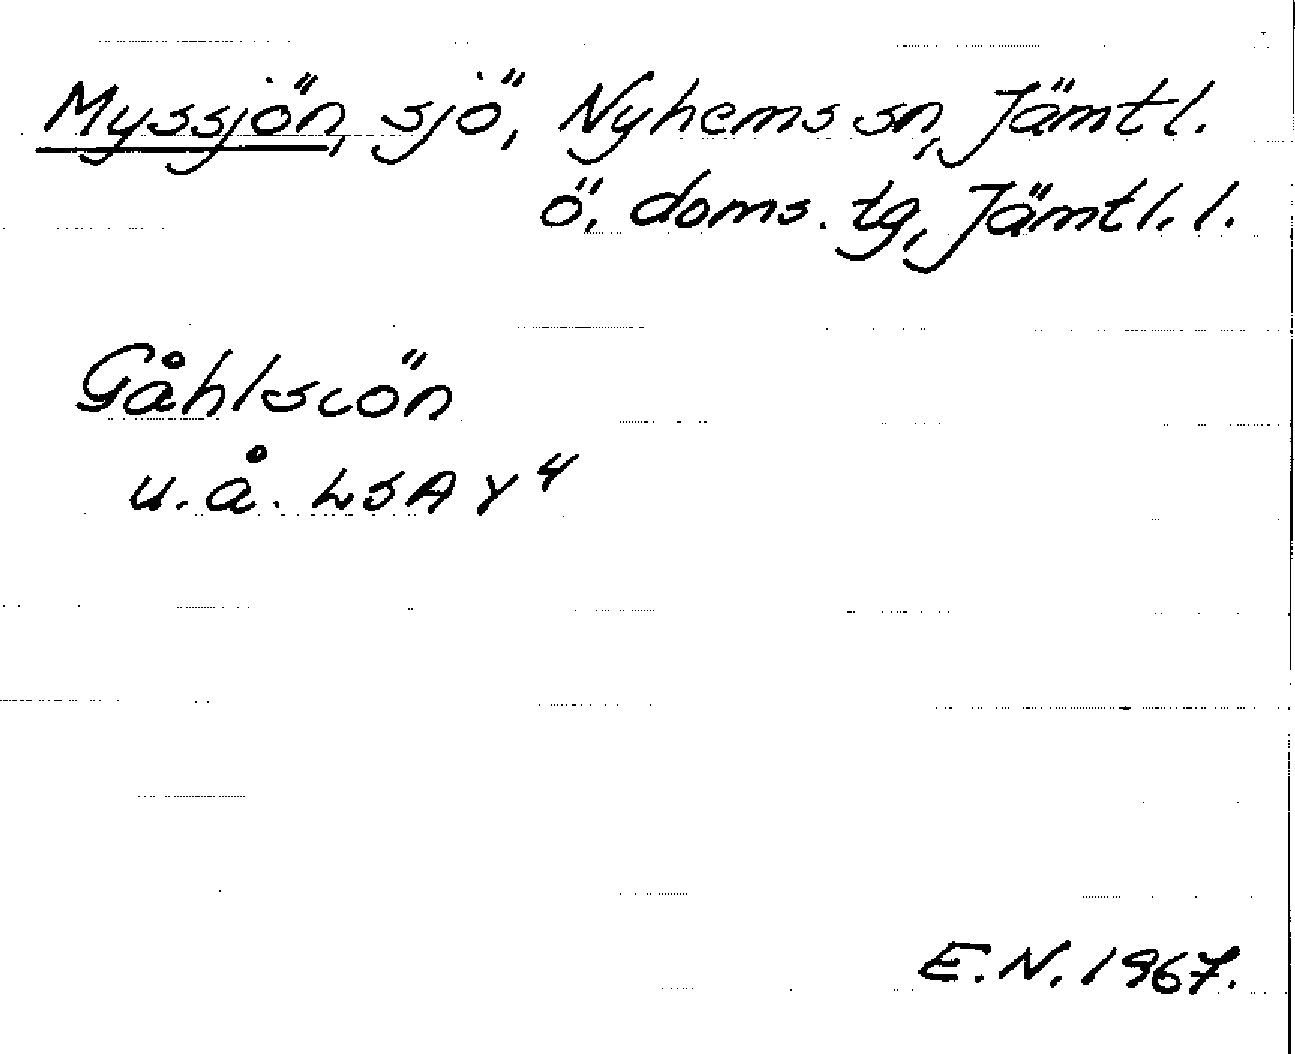 Myssjön, sjö, Nyhems sn, Jämtl.
ö. doms. tg, Jämtl. l.
Gåhlscön
u.å. LSA Y 4
E.N. 1967.